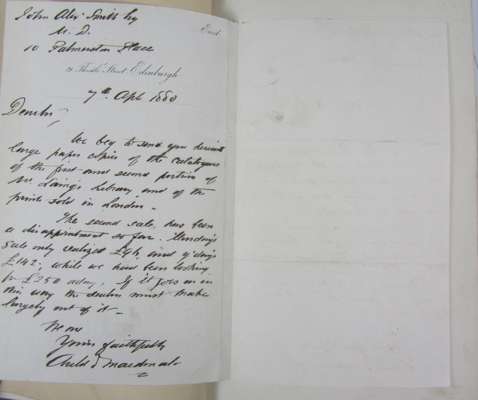 John Alexr Smith Esq
M. D.
10 Palmerston Place
21 Thistle Street Edinburgh
7th April 1880
Dear Sir,
We beg to send you herewith
large paper copies of the catalogues
of the first and second portion of
Mr Laing's Library and of the
prints sold in London.
The second sale has been
a disappointment so far.
sale only realized £96, and
£142; while we have been looking
for £250 a day. If it goes on in
this way the dealers must make
largely out of it.
We are
Yours faithfully